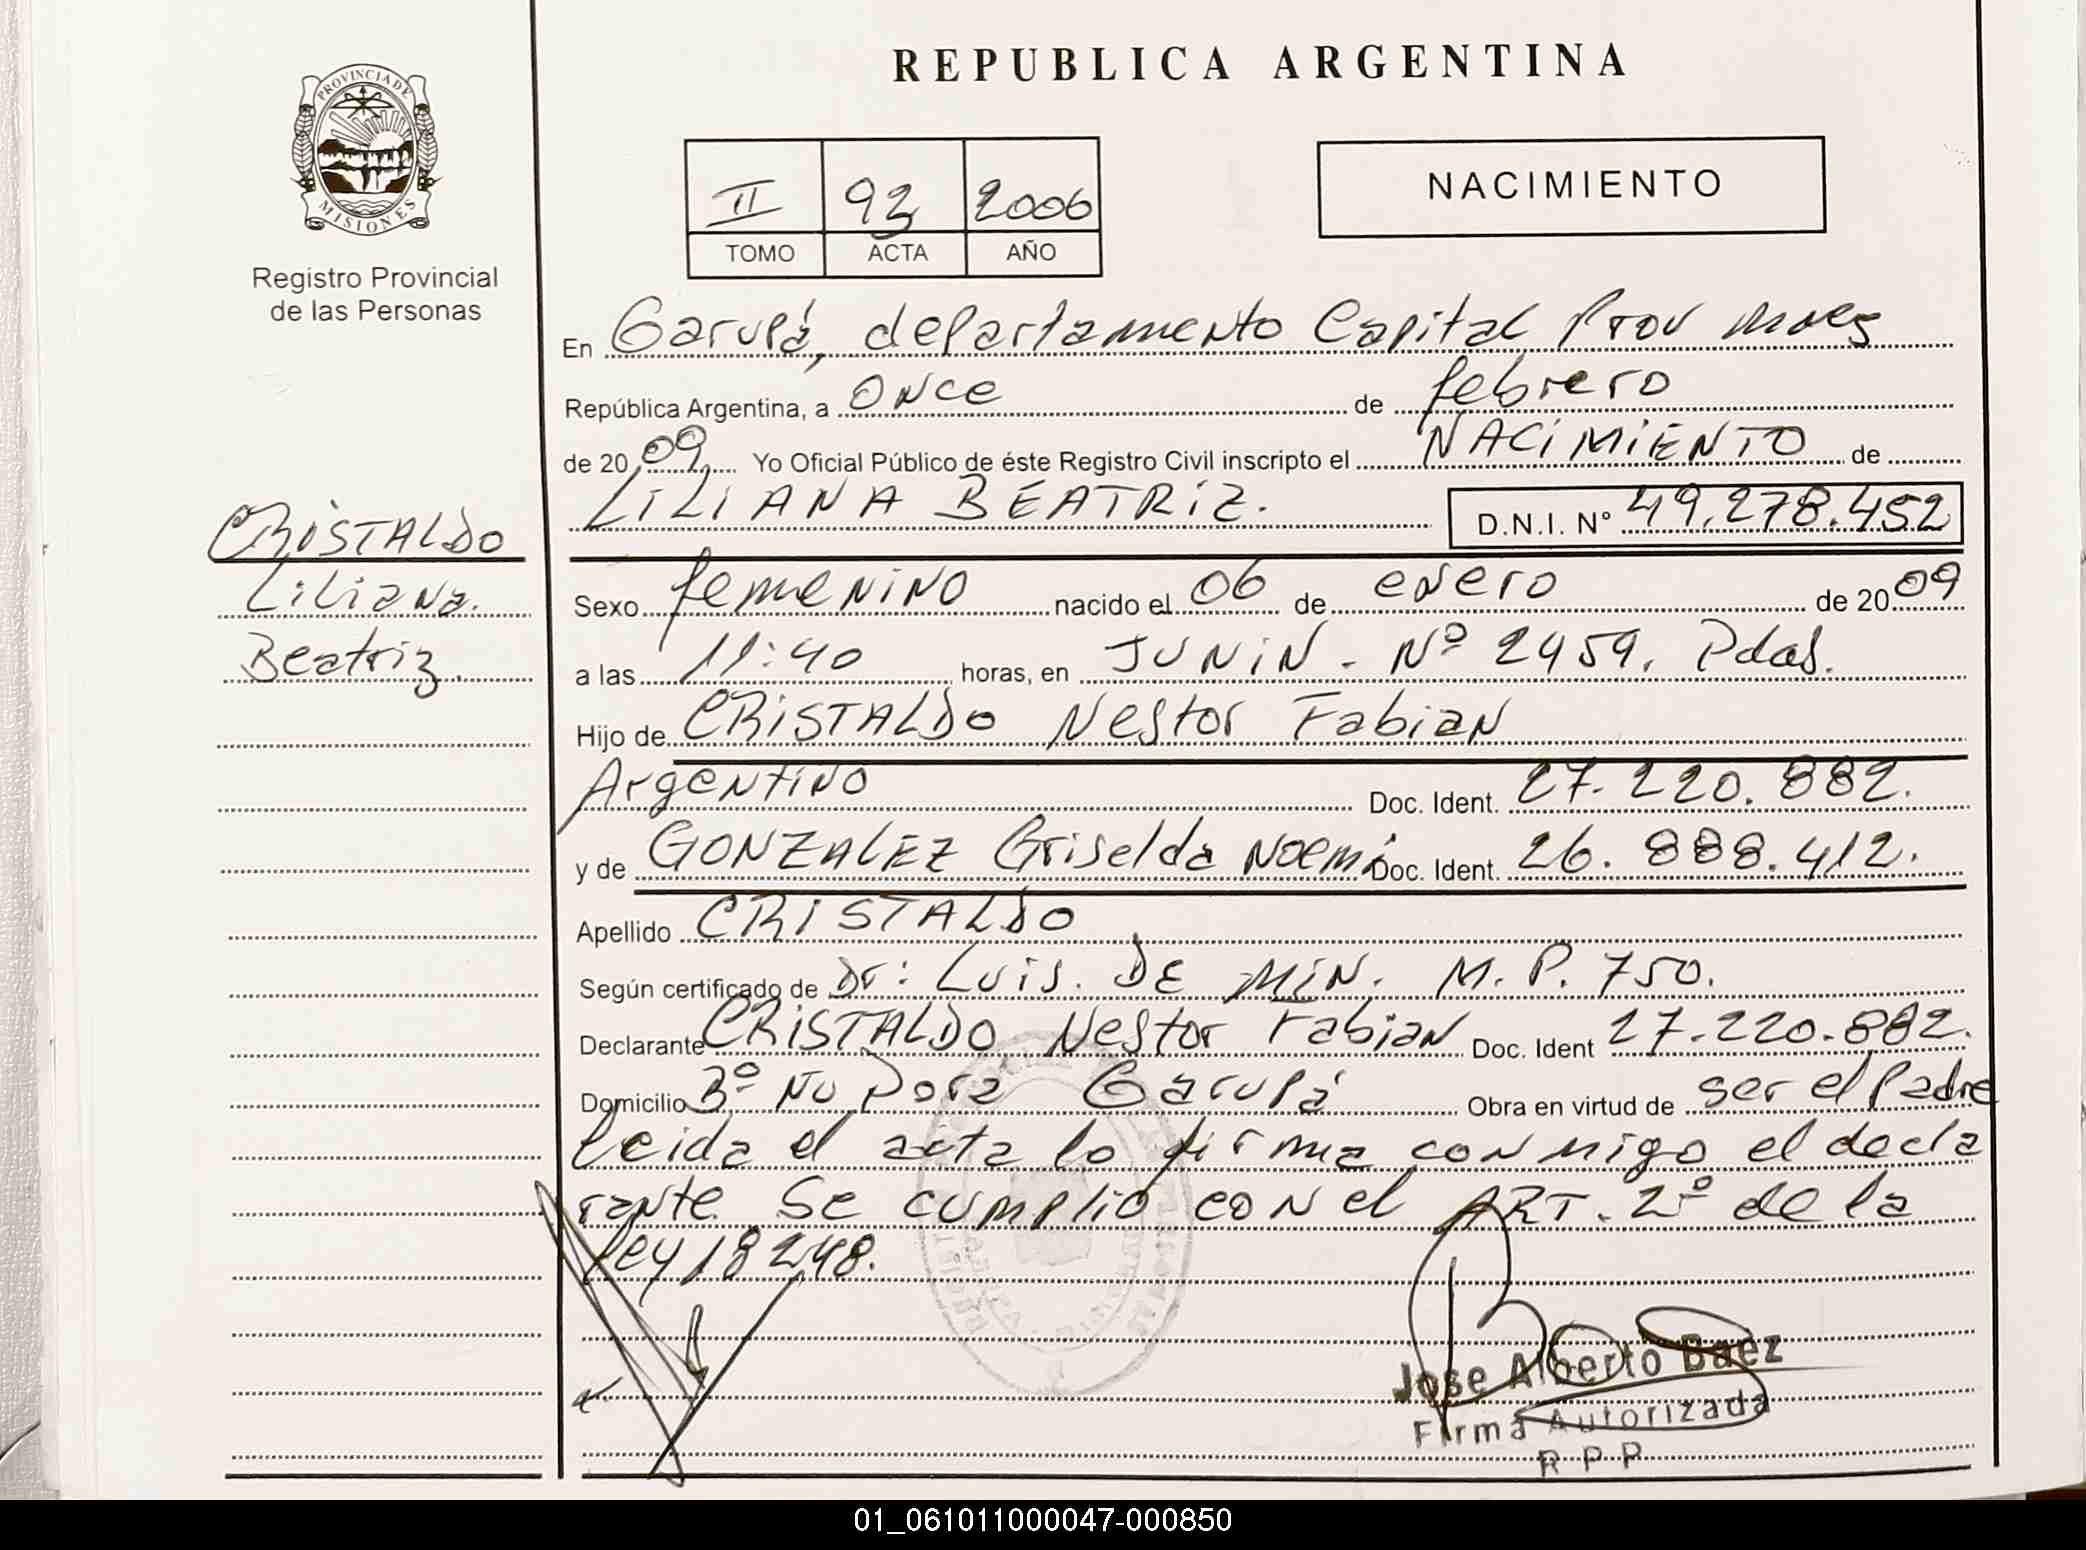 REPUBLICA ARGENTINA
PROVINCIA DE
MISIONES
Registro Provincial
de las Personas
II 93 2006
TOMO ACTA AÑO
NACIMIENTO
En Garupá, departamento Capital Prov mnes
República Argentina, a once de febrero
de 2009 Yo Oficial Público de éste Registro Civil inscripto el NACIMIENTO de
LILIANA BEATRIZ. D.N.I. Nº 49.278.452
CRISTALDO
Liliana.
Beatriz.
Sexo femenino nacido el 06 de enero de 2009
a las 11:40 horas, en JUNIN. Nº 2459. Pdas.
Hijo de CRISTALDO Nestor Fabian
Argentino Doc. Ident. 27.220.882.
y de GONZALEZ Griselda Noemi Doc. Ident. 26.888.412.
Apellido CRISTALDO
Según certificado de Dr: Luis. DE MIN. M.P. 750.
Declarante CRISTALDO Nestor Fabian Doc. Ident 27.220.882.
Domicilio Bº Ñu Pora Garupá Obra en virtud de ser el Padre
leida el acta lo firma conmigo el decla
rante. Se cumplio con el ART. 2º de la
ley 18248.
Jose Alberto Baez
Firma Autorizada
R P P
01_061011000047-000850